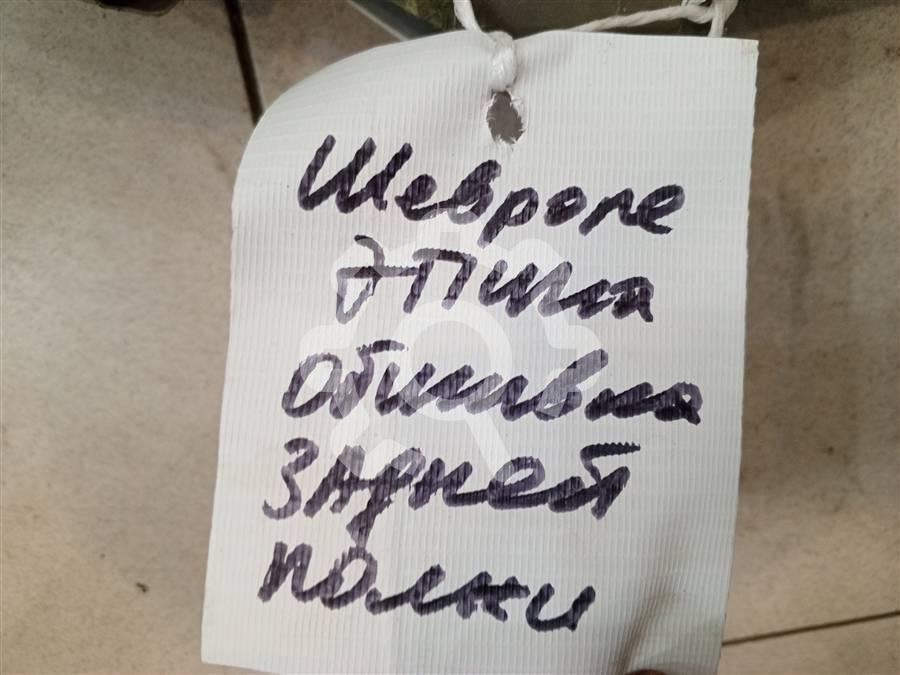 Шевроле
Эпика
Обшивка
задней
полки